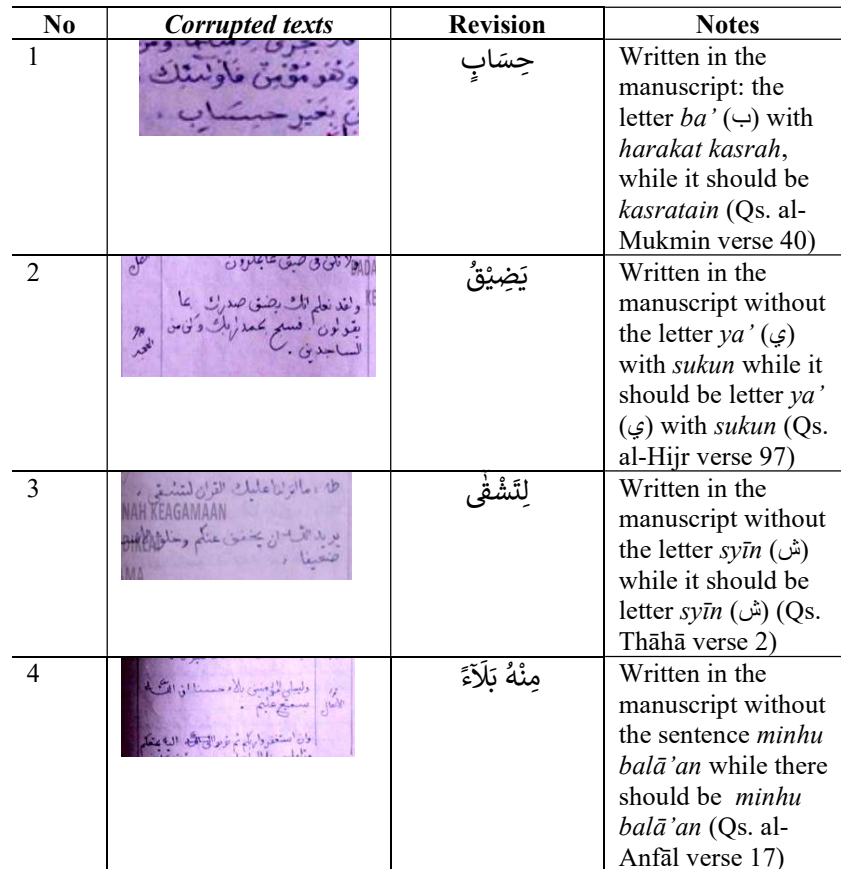 No Corrupted texts Revision Notes
1
وَهُوَ مُؤْمِنٌ فَاُولٰئِكَ
بِغَيْرِ حِسَابِ .
حِسَابٍ
Written in the
manuscript: the
letter ba’ (ب) with
harakat kasrah,
while it should be
kasratain (Qs. al-
Mukmin verse 40)
2
ولقد نعلم انك يضق صدرك بما
يقولون . فسبح بحمد ربك وكن من
الساجدين .
يَضِيْقُ
Written in the
manuscript without
the letter ya’ (ي)
with sukun while it
should be letter ya’
(ي) with sukun (Qs.
al-Hijr verse 97)
3
طه ، ما انزلنا عليك القران
NAH KEAGAMAAN
يريد الله ان يخفف عنكم وخلق
ضعيفا ،
لِتَشْقٰٓى
Written in the
manuscript without
the letter syīn (ش)
while it should be
letter syīn (ش) (Qs.
Thāhā verse 2)
4
وليبلي المؤمنين بلاء حسنا ان الله
سميع عليم .
وان استغفروا ربكم ثم توبوا
مِنْهُ بَلَآءً
Written in the
manuscript without
the sentence minhu
balā’an while there
should be minhu
balā’an (Qs. al-
Anfāl verse 17)